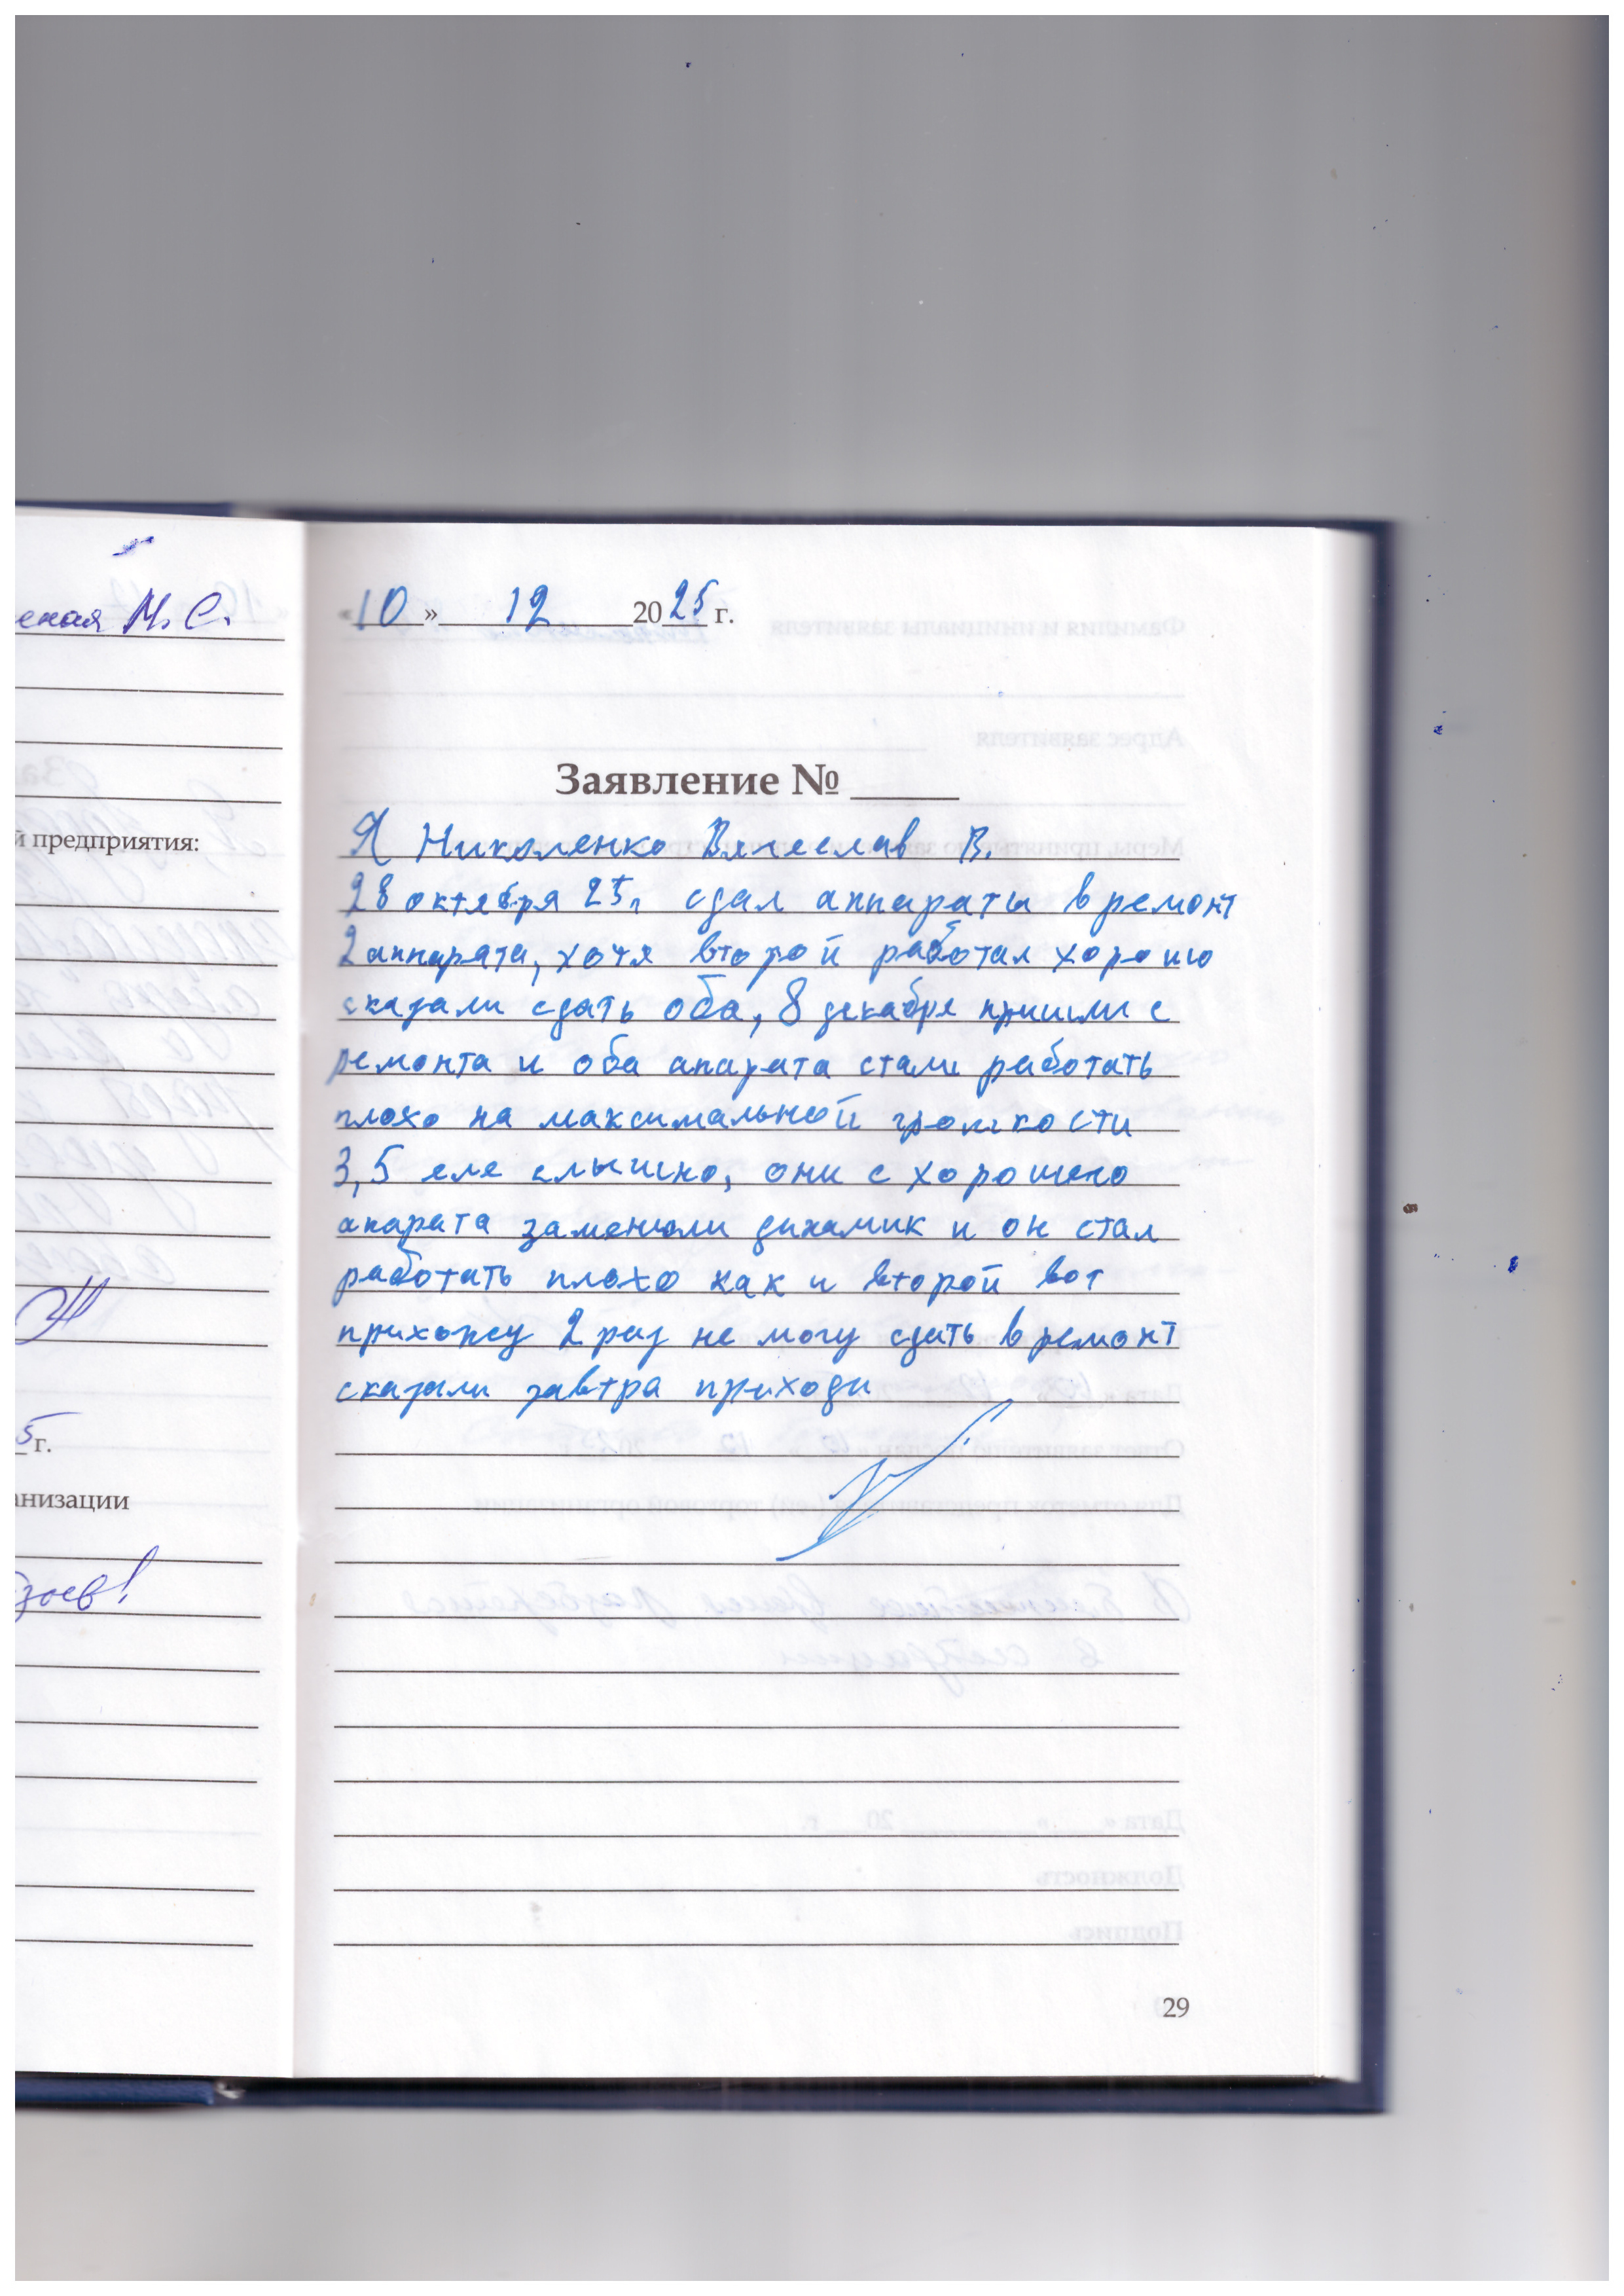 ская М. С.
й предприятия:
5 г.
анизации
«10» 12 2025 г.
Заявление №
Я Николенко Вячеслав В.
28 октября 25г сдал аппараты в ремонт
2 аппарата, хотя второй работал хорошо
сказали сдать оба, 8 декабря пришли с
ремонта и оба апарата стали работать
плохо на максимальной громкости
3,5 еле слышно, они с хорошего
апарата заменили динамик и он стал
работать плохо как и второй вот
прихожу 2 раз не могу сдать в ремонт
сказали завтра приходи
29